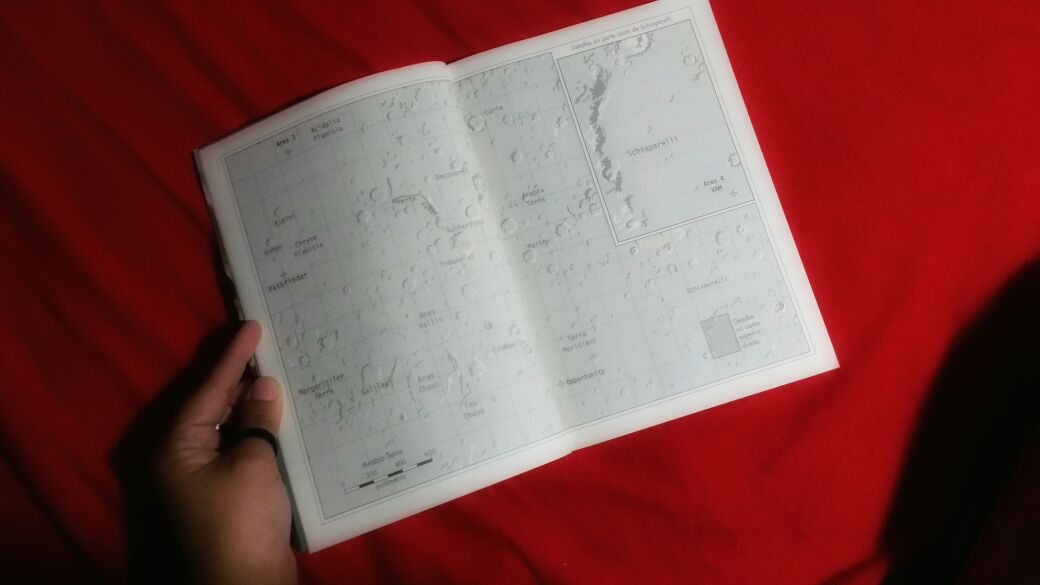 Detalhe da parte oeste de Schiaparelli
Ares 3
Acidalia
Planitia
Curie
Schiaparelli
Ares 4
VAM
Becquerel
Mawrth
Arabia
Terra
Rutherford
Chryse
Planitia
Marth
Trouvelot
Pathfinder
Schiaparelli
Ares
Vallis
Crommelin
Terra
Meridiani
Detalhe
no canto
superior
direito
Opportunity
Margaritifer
Terra
Galilaei
Aram
Chaos
Chaos
Arabia Terra
0 200 400 600
quilômetros